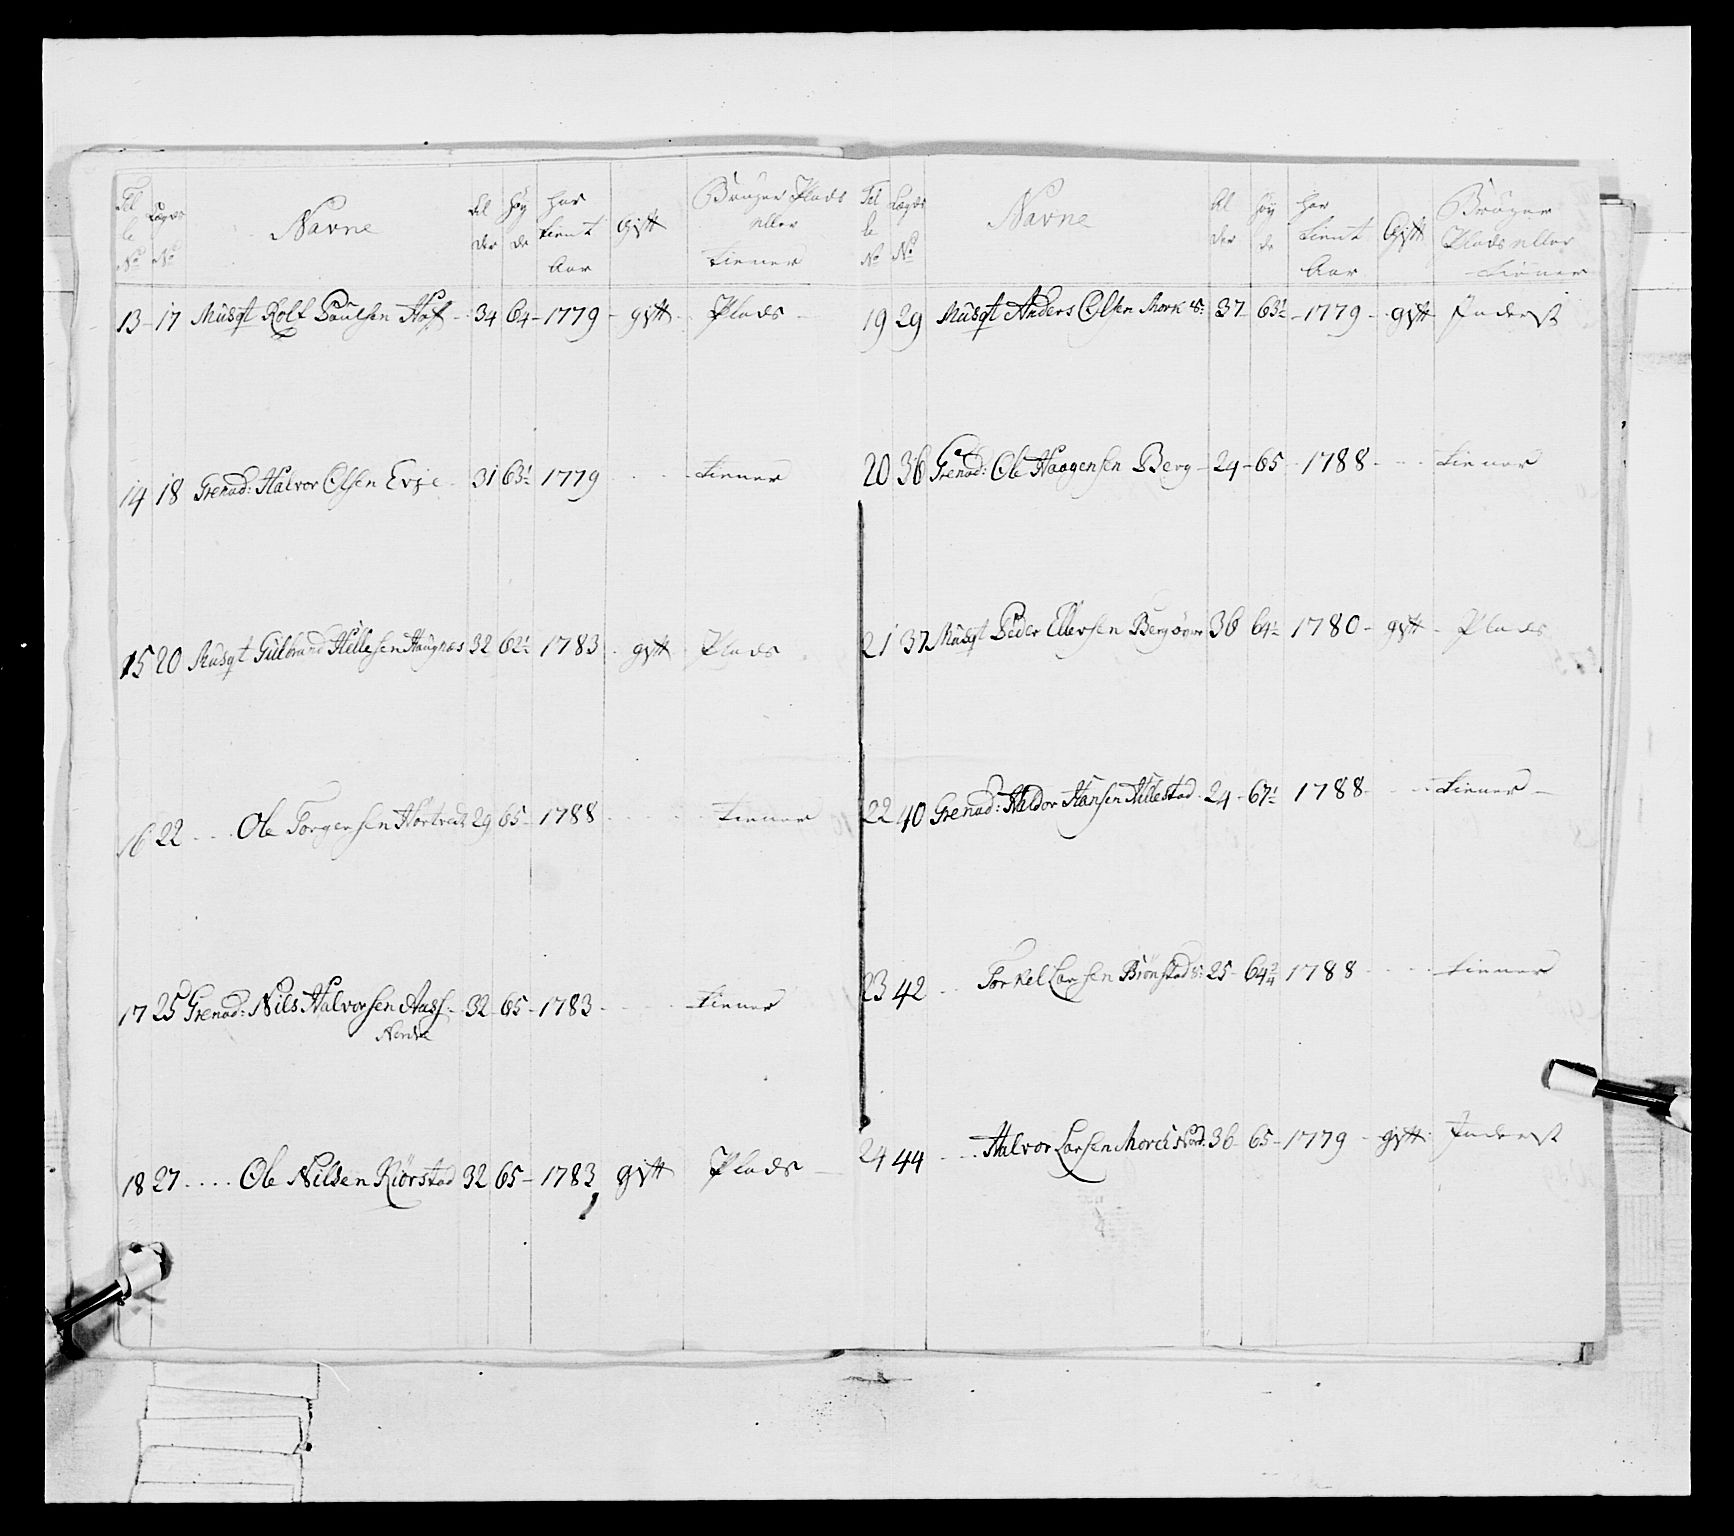 Tel le No Lægds No Navne Al der Høy de Har tient Aar Gift Bruger Plads eller tiener
13 17 Musqt Rolf Poulsen Hof 34 64 1779 gift Plads
14 18 Grenad: Halvor Olsen Evje 31 63½ 1779 tiener
15 20 Musqt Gulbrand Hellesen Haugnæs 32 62½ 1783 gift Plads
16 22 Ole Torgersen 29 65 1788 tiener
17 25 Grenad: Nils Halvorsen Aas 32 65 1783 tiener
Nordre
18 27 Ole Nilsen Kiørstad 32 65 1783 gift Plads
Tel le No Lægds No Navne Al der Høy de Har tient Aar Gift Bruger Plads eller tiener
19 29 Musqt Anders Olsen Mork 37 63½ 1779 gift Inderst
20 36 Grenad: Ole Haagensen Berg 24 65 1788 tiener
21 37 Musqt Peder Ellevsen Berg øvre 36 64½ 1780 gift Plads
22 40 Grenad: Haldor Hansen Hillestad 24 67½ 1788 tiener
23 42 Torkel Larsen Biønstad 25 64¾ 1788 tiener
24 44 Halvor Larsen Morch Nord 36 65 1779 gift Inderst